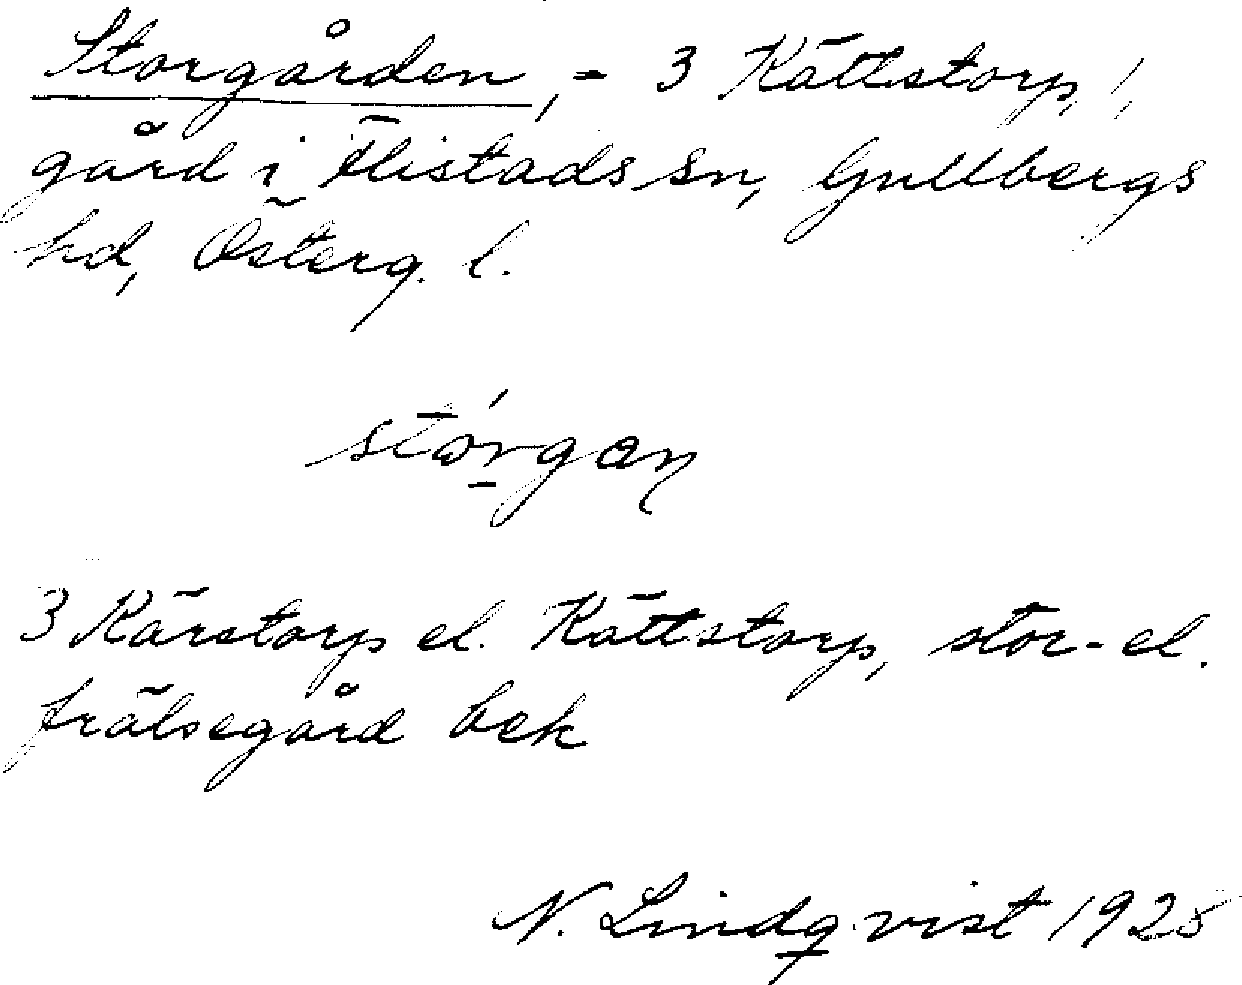 Storgården, - 3 Kättstorp, 1,
gård i Flistads sn, Gullbergs
hd, Österg. l.
stórgan
3 Kärstorp el. Kättstorp, stor- el.
frälsegård bek
N. Lindqvist 1925